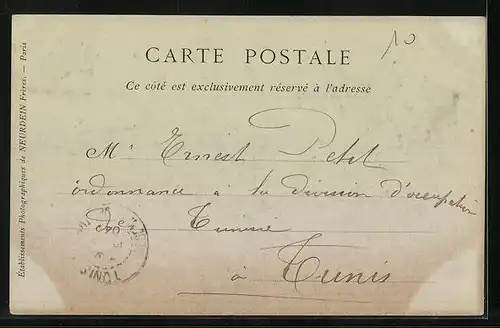 10
CARTE POSTALE
Ce côté est exclusivement réservé à l'adresse
Mr Ernest Petit
ordonnance à la division d'occupation
de Tunisie
à Tunis
TUNIS
Etablissements Photographiques de NEURDEIN Frères. — Paris